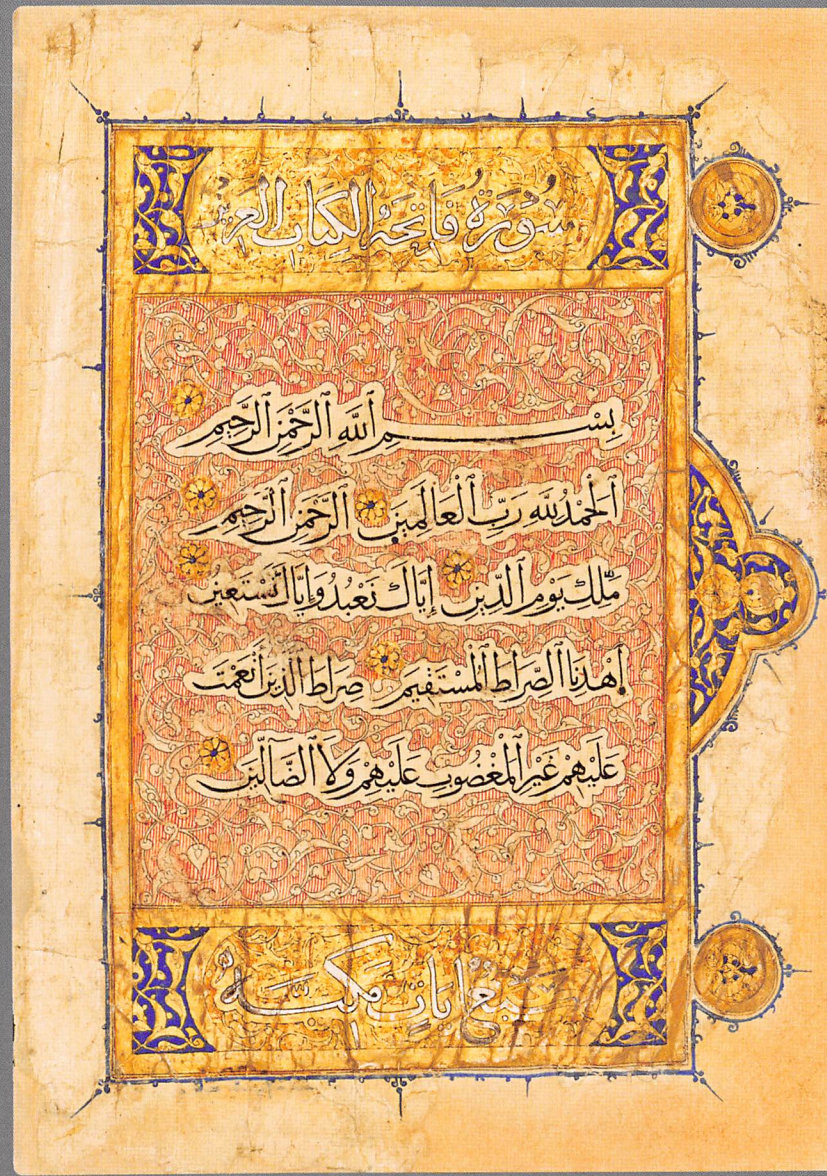 سورة فاتحة الكتاب العزيز
بِسْمِ ٱللَّهِ ٱلرَّحْمَٰنِ ٱلرَّحِيمِ
ٱلْحَمْدُ لِلَّهِ رَبِّ ٱلْعَالَمِينَ ٱلرَّحْمَٰنِ ٱلرَّحِيمِ
مَٰلِكِ يَوْمِ ٱلدِّينِ إِيَّاكَ نَعْبُدُ وَإِيَّاكَ نَسْتَعِينُ
ٱهْدِنَا ٱلصِّرَاطَ ٱلْمُسْتَقِيمَ صِرَاطَ ٱلَّذِينَ أَنْعَمْتَ
عَلَيْهِمْ غَيْرِ ٱلْمَغْضُوبِ عَلَيْهِمْ وَلَا ٱلضَّآلِّينَ
سبع ايات مكية